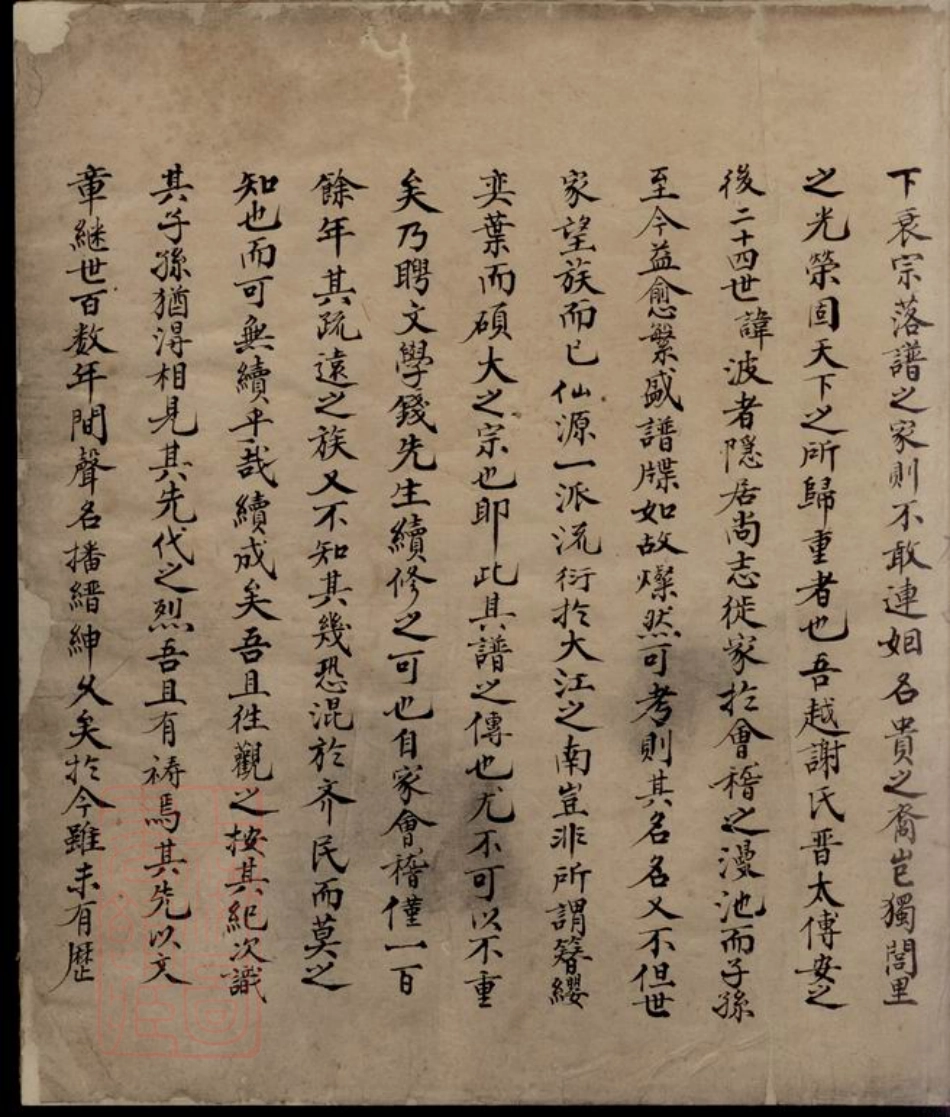 下衰宗落譜之家則不敢連姻名貴之裔豈獨閭里
之光榮固天下之所歸重者也吾越謝氏晋太傅安之
後二十四世諱波者隱居尚志徙家扵會稽之漫池而子孫
至今益愈繁盛譜牒如故燦然可考則其名名又不但世
家望族而已仙源一派流衍扵大江之南豈非所謂簪纓
奕葉而碩大之宗也即此其譜之傳也尤不可以不重
矣乃聘文學錢先生續修之可也自家會稽僅一百
餘年其疏遠之族又不知其幾恐混於齐民而莫之
知也而可無續乎哉續成矣吾且徃觀之按其紀次識
其子孫猶淂相見其先代之烈吾且有禱焉其先以文
章継世百数年間聲名播縉紳久矣扵今雖未有歴